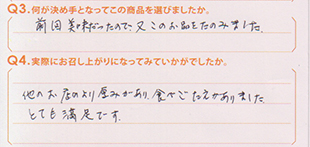 Q3.何が決め手となってこの商品を選びましたか。
前回美味だったので、又このお品をたのみました。
Q4.実際にお召し上がりになってみていかがでしたか。
他のお店のより厚みがあり、食べごたえがありました
とても満足です。